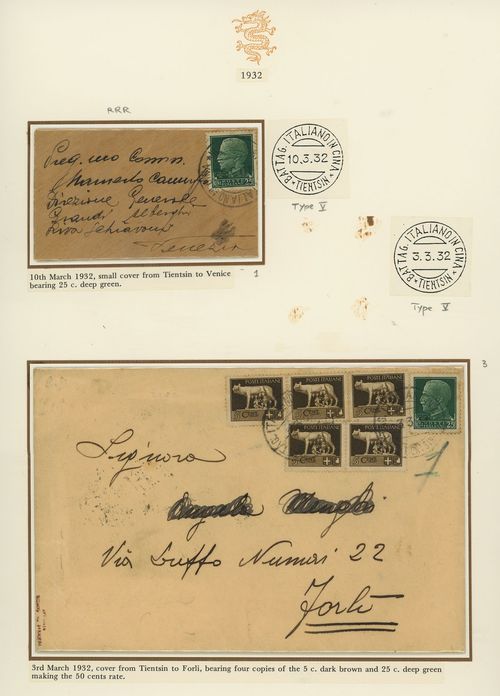 1932
RRR
Preg.mo Comm.
Direzione Generale
Grandi Alberghi
Riva Schiavoni
Venezia
BATTAG. ITALIANO IN CINA
10.3.32
* TIENTSIN *
Type V
10th March 1932, small cover from Tientsin to Venice
bearing 25 c. deep green.
1
BATTAG. ITALIANO IN CINA
3.3.32
* TIENTSIN *
Type V
3
POSTE ITALIANE POSTE ITALIANE POSTE ITALIANE
Signora
1
Via Duffo Numeri 22
Forlì
3rd March 1932, cover from Tientsin to Forli, bearing four copies of the 5 c. dark brown and 25 c. deep green
making the 50 cents rate.